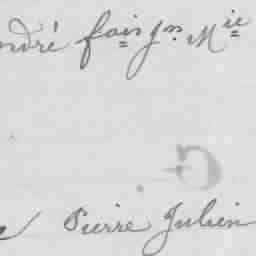 ndré fois Jn Mie
Pierre Julien